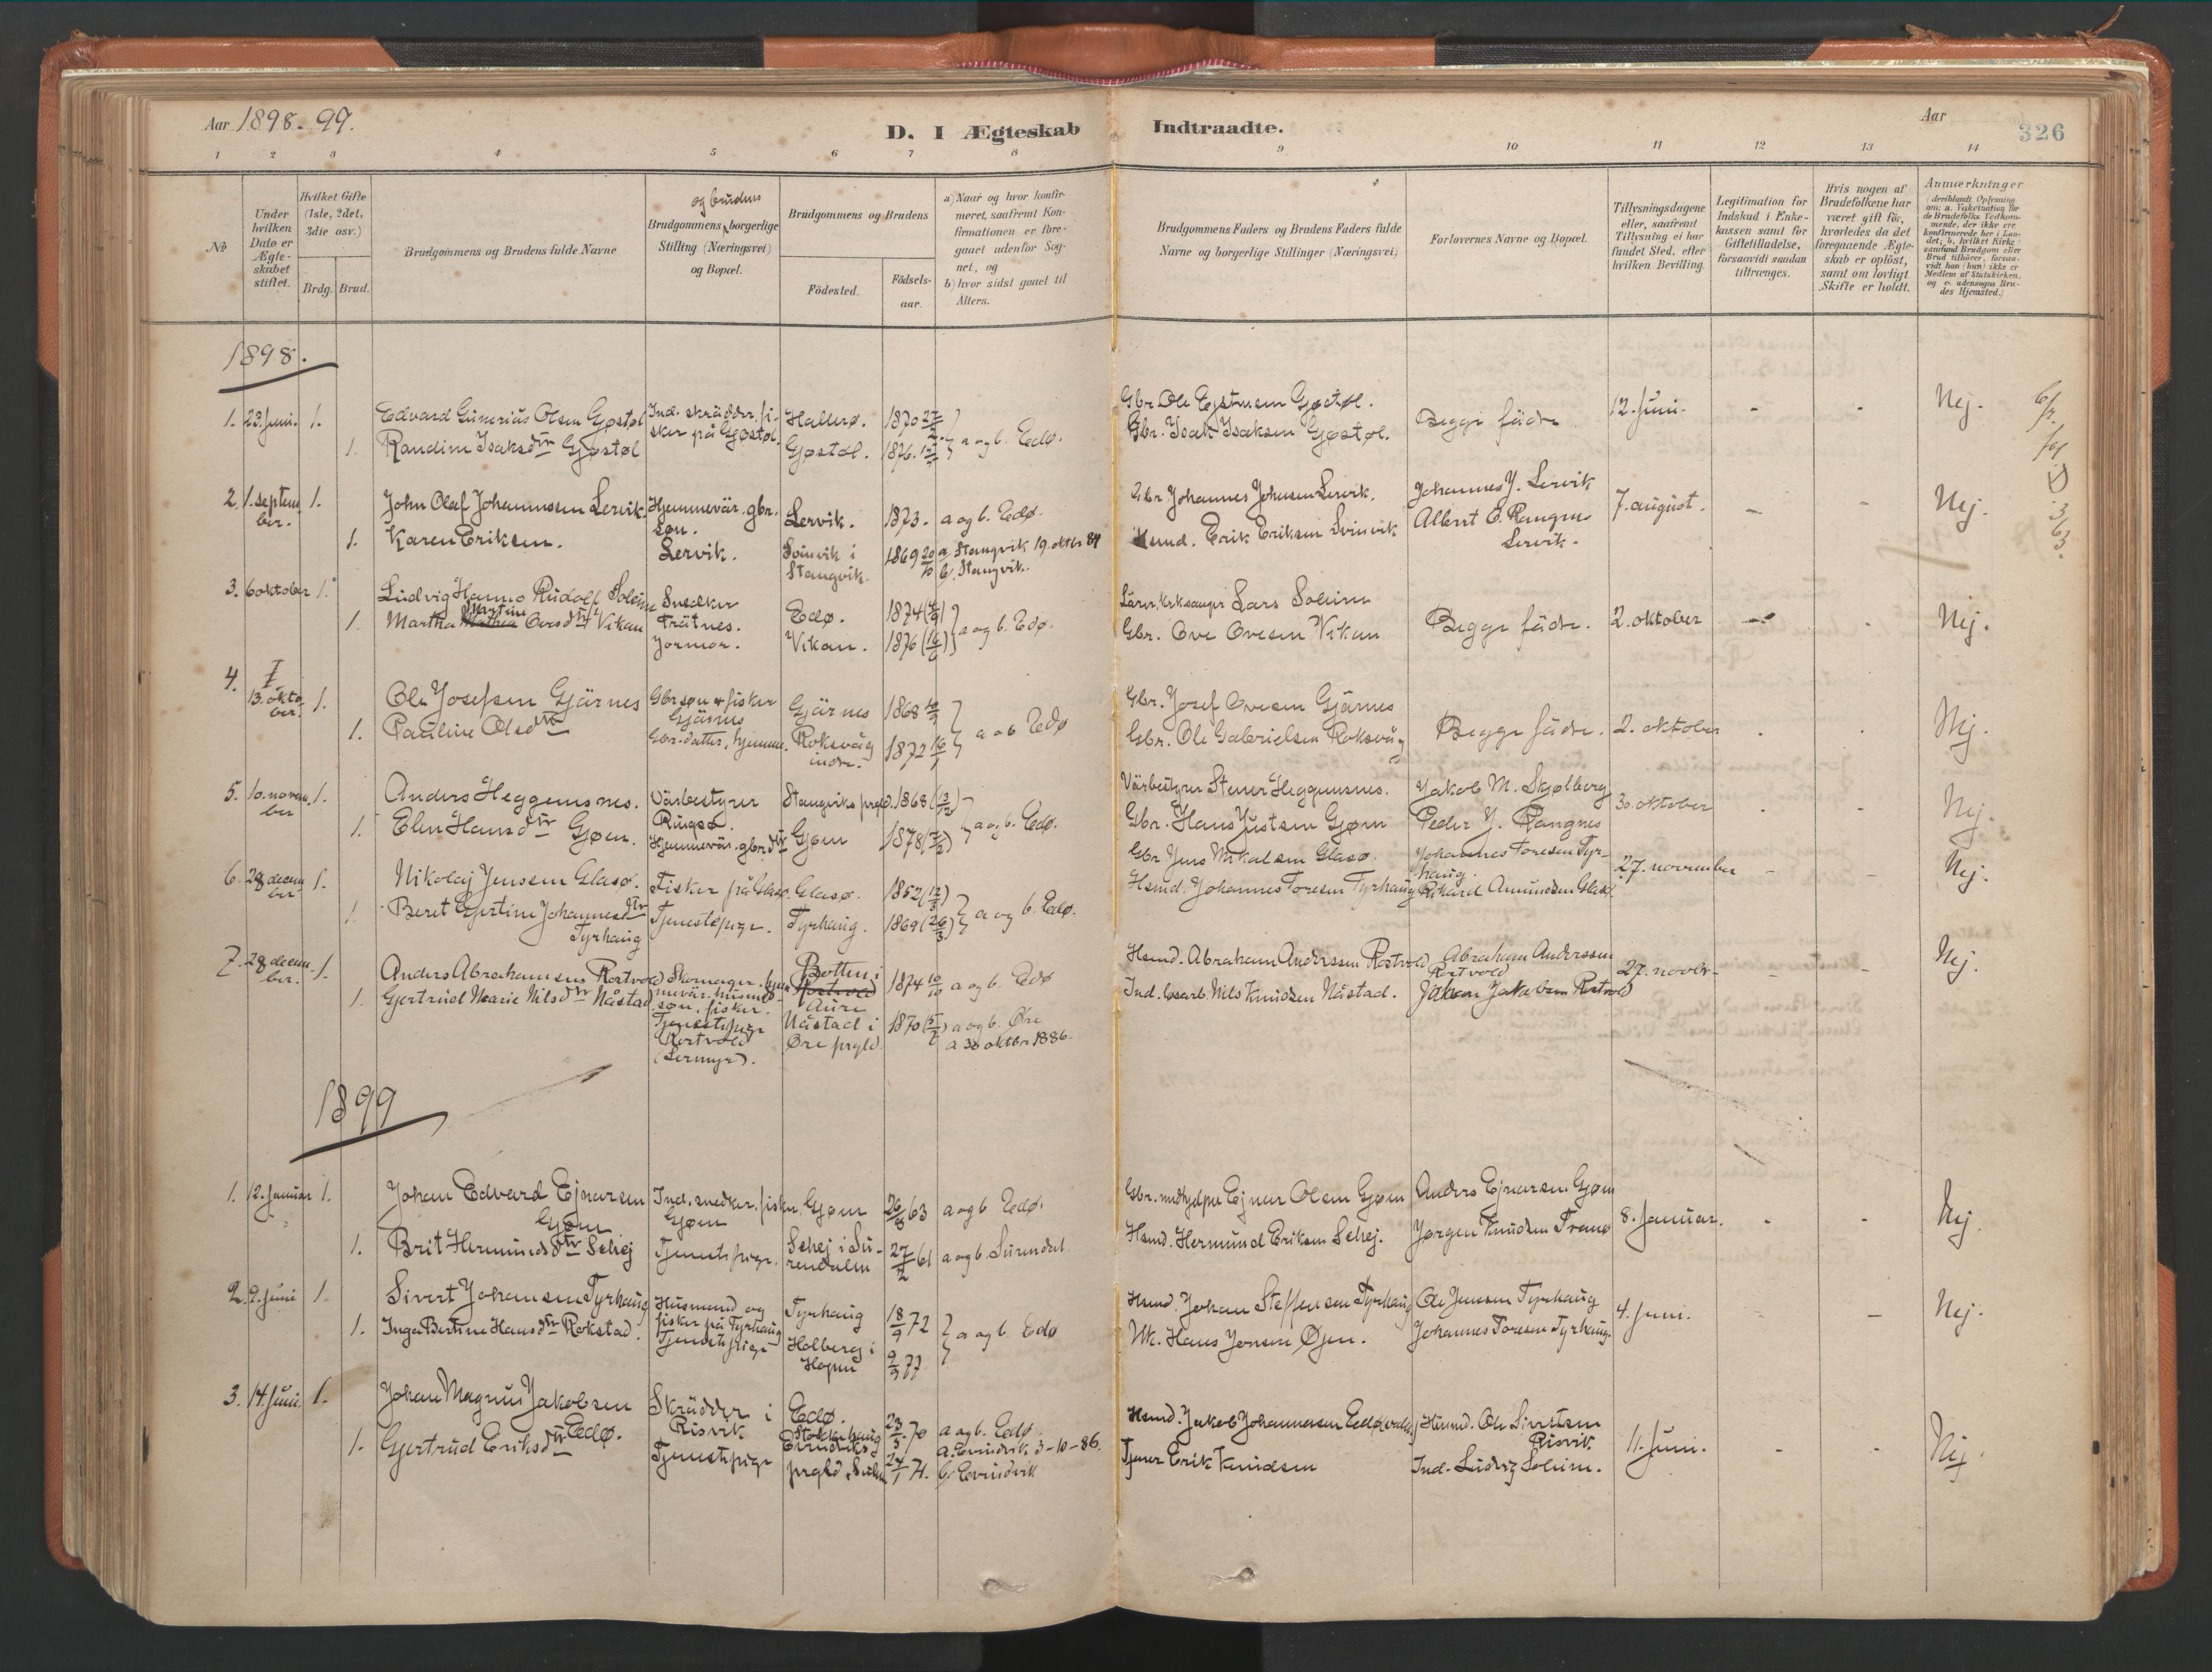 Aar 1898-99.
D. I Ægteskab Indtraadte.
Aar
326
1 2 3 4 5 6 7 8 9 10 11 12 13 14
No
Under hvilken Dato er Ægteskabet stiftet.
Hvilket Gifte (1ste, 2det, 3die osv.)
Brdg. Brud.
Brudgommens og Brudens fulde Navne
Brudgommens og brudens borgerlige Stilling (Næringsvei) og Bopæl.
Brudgommens og Brudens
Födested.
Födsels-aar.
a) Naar og hvor konfirmeret, saafremt Konfirmationen er foregaaet udenfor Sognet, og
b) hvor sidst gaaet til Alters.
Brudgommens Faders og Brudens Faders fulde Navne og borgerlige Stillinger (Næringsvei)
Forlovernes Navne og Bopæl.
Tillysningsdagene eller, saafremt Tillysning ei har fundet Sted, efter hvilken Bevilling.
Legitimation for Indskud i Enkekassen samt for Giftetilladelse, forsaavidt saadan tiltrænges.
Hvis nogen af Brudefolkene har været gift för, hvorledes da det foregaaende Ægteskab er oplöst, samt om lovligt Skifte er holdt.
Anmærkninger (deriblandt Oplysning om: a. Vakcination for de Brudefolks Vedkommende, der ikke ere konfirmerede her i Landet; b. hvilket Kirkesamfund Brudgom eller Brud tilhörer, forsaavidt han (hun) ikke er Medlem af Statskirken, og c. udensogns Brudes Hjemsted.)
1898.
1. 23. Juni. 1. Edvard Gunerius Olsen Gjøstøl Ind. skrädder, fisker på Gjøstøl. Hallerø. 1870 Gbr. Ole Gjøstøl. Begge fädre 12. Juni. - - Nej.
1. Randine Isaksdtr Gjøstøl Gjøstøl. 1876. a og b. Edø. Gbr. Isak Isaksen Gjøstøl.
2. 1. september. 1. John Olaf Johannessen Lervik. Hjemmevär. gbr. søn. Lervik. 1873. a og b. Edø. Gbr. Johannes Johnsen Lervik. Johannes J. Lervik 7. august. - - Nej.
1. Karen Eriksen. Lervik. Svinvik i Stangvik. 1869 20/10 a. Stangvik 19. oktbr 84 b. Stangvik. Hsmd. Erik Eriksen Svinvik Albert O. Rangnes Lervik.
3. 6 oktober 1. Ludvig Hanno Rudolf Solem Snedker Trätnes. Edø. 1874 Lärer, kirksanger Lars Solem Begge fädre. 2. oktober - . Nej.
1. Martha Martine Ovesdtr Vikan Jormor. Vikan. 1876 a og b. Edø. Gbr. Ove Ovesen Vikan
4. 13. oktober. 1. Ole Josefsen Gjärnes Gbrsøn & fisker Gjärnes Gjärnes 1868 Gbr. Josef Ovesen Gjärnes Begge fädre. 2. oktober . . Nej.
1. Pauline Olsdtr Gbr. datter, hjemme. Roksvåg indre. 1872 16/1 a o b Edø Gbr. Ole Gabrielsen Roksvåg
5. 10. november 1. Anders Heggemsnes. Värbestyrer Ringsø. Stangviks prgld. 1868 Värbestyrer Stener Heggemsnes. Jakob M. Skjølberg 30. oktober - - Nej.
1. Elen Hansdtr Gjøen. Hjemmevär. gbrdtr Gjøen 1878 a og b. Edø. Gbr. Hans Justsen Gjøen Peder J. Rangnes
6. 28 december 1. Nikolaj Jenssen Glasø. Fisker på Glasø. Glasø. 1852 Gbr. Jens Mikalsen Glasø. Johannes Toresen Tyrhaug. 27. november - - Nej.
1. Beret Gjertine Johannesdtr Tyrhaug Tjenestepige. Tyrhaug. 1869 (26/3) a og b. Edø. Hsmd. Johannes Toresen Tyrhaug Rikard Amundsen Glasø.
7. 28 december. 1. Anders Abrahamsen Rostvold Skomager. hjemmevär. husmdsøn, fisker. Botten i Aure 1874 10/10 a og b. Edø Hsmd. Abraham Anderssen Rostvold Abraham Anderssen Rostvold 27. novbr - - Nej.
1. Gjertrud Marie Nilsdtr Nåstad Tjenestepige Rostvold (Lermyr). Nåstad i Øre prgld. 1870 a og b. Øre a 30 oktbr 1886. Ind. løsarb. Nils Knudsen Nåstad. Jakob Jakobsen Rostvold
1899
1. 12. Januar 1. Johan Edvard Ejnarsen Gjøen Ind. snedker. fisker Gjøen Gjøen 26/8 63 a og b Edø. Gbr. Ejnar Olsen Gjøen Anders Ejnarsen Gjøen 8. Januar. - - Nej
1. Brit Hermundsdtr Sehej Tjenestepige. Sehej i Surendalen 27/2 61 a og b. Surendal Hsmd. Hermund Eriksen Sehej. Jørgen Knudsen Tranø
2. 9. Juni 1. Sivert Johansen Tyrhaug Husmand og fisker på Tyrhaug Tyrhaug 18/9 72 Hsmd. Johan Steffensen Tyrhaug Ole Jensen Tyrhaug 4. Juni. - Nej.
1. Inga Bertine Hansdtr Rokstad. Tjenestepige Holberg i Hopen 9/9 77 a og b. Edø Hans Jonsen Øjen. Johannes Toresen Tyrhaug.
3. 14. Juni. 1. Johan Magnus Jakobsen Edø. Skrädder i Risvik Edø. 23/5 70 a og b. Edø Hsmd. Jakob Johannesen Husmd. Ole Sivertsen Risvik 11. Juni. - - Nej.
1. Gjertrud Eriksdtr Tjenestepige prgld. 24/1 71. a. 3-10-86. b. Tjener Erik Knudsen Ind. Ludvig Solem.